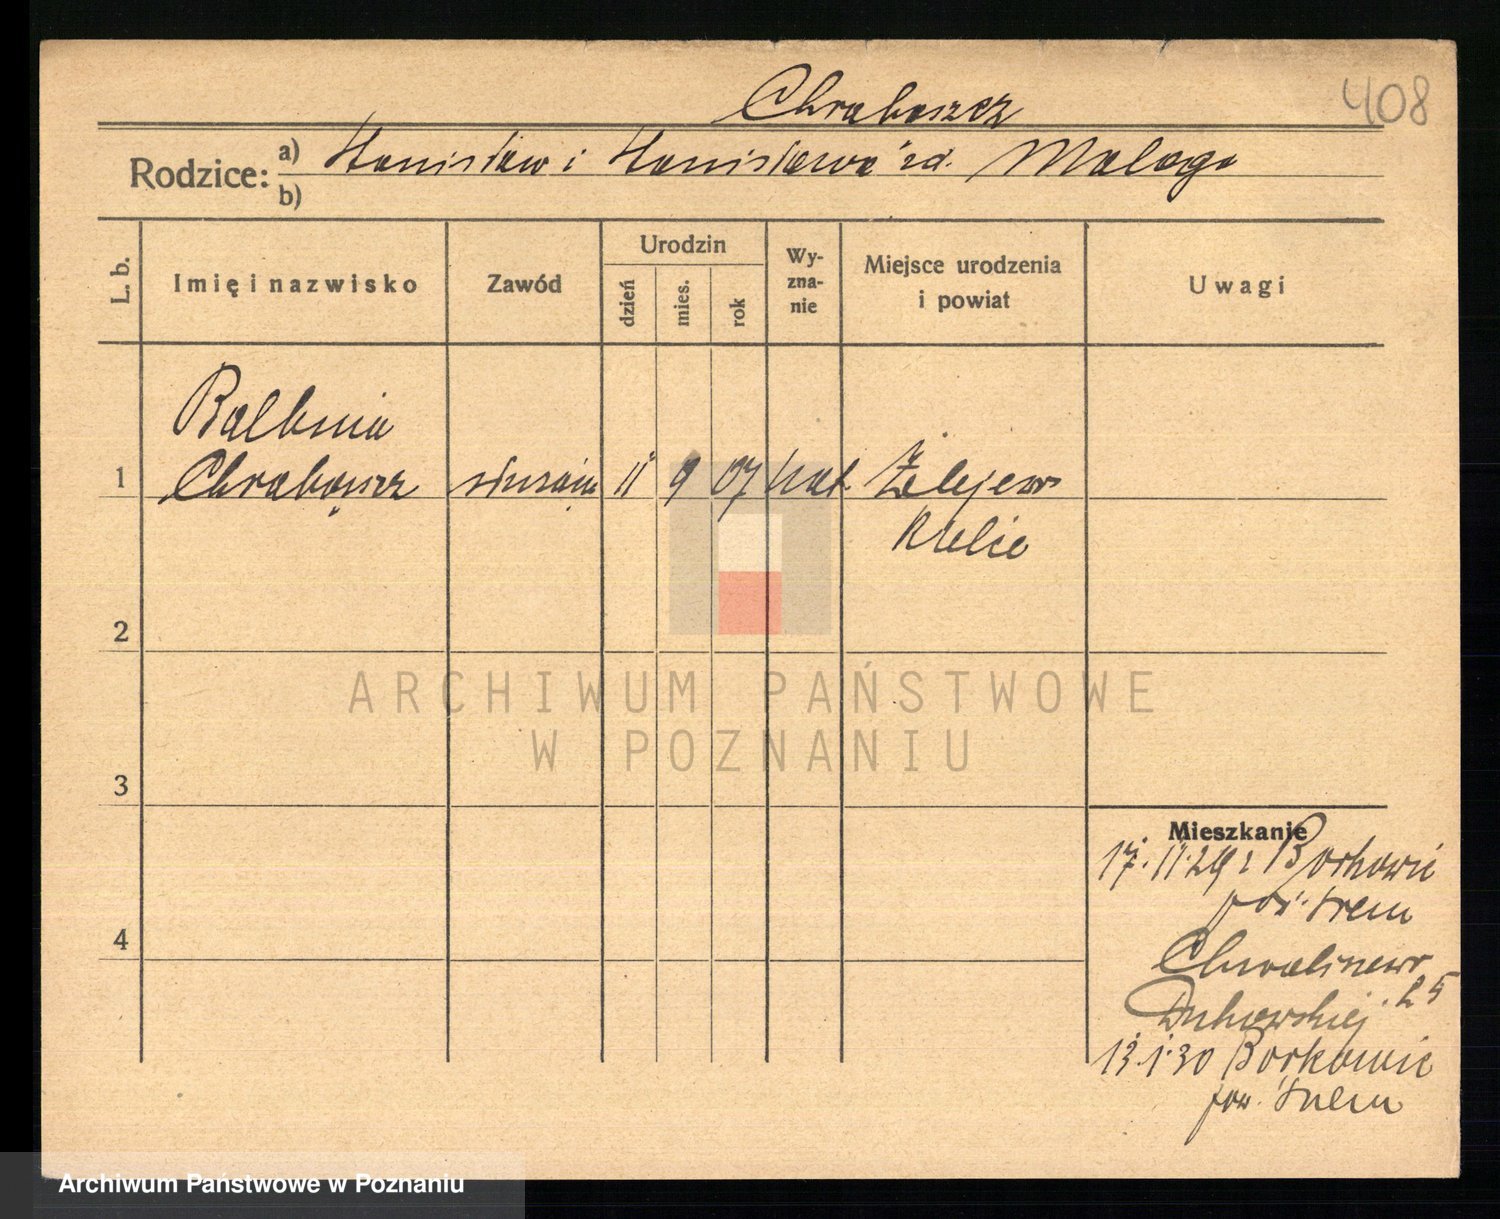 408
Chrabąszcz
Rodzice: a) Stanisław i Stanisława zd. Malaga
b)
L. b. Imię i nazwisko Zawód Urodzin dzień mies. rok Wy-zna-nie Miejsce urodzenia i powiat Uwagi
Balbina
1 Chrabąszcz służąca 11 9 07 kat.
2
ARCHIWUM PAŃSTWOWE
W POZNANIU
3
Mieszkanie
17.11.29 z Borkowic
pow. Śrem
4
Chwaliszewo
25
13.1.30 Borkowic
pow. Śrem
Archiwum Państwowe w Poznaniu